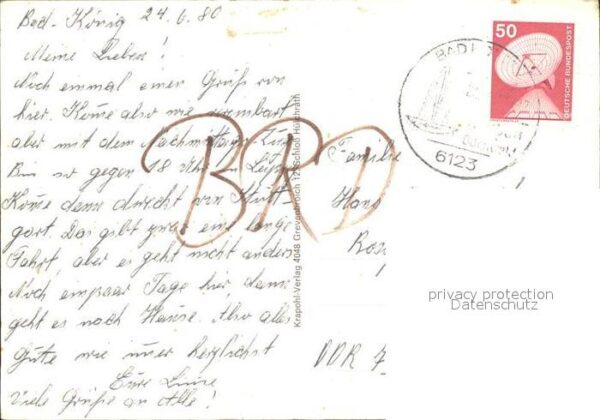 Bad-König 24.6.80
Meine Lieben!
Noch einmal einen Gruß von
hier. Kome also wie vereinbart
aber mit dem Nachmittagszug
Bin so gegen 18 Uhr in
Kome dann direckt von Stutt-
gart. Das gibt zwar eine lange
Fahrt, aber es geht nicht anders
Noch einpaar Tage hier, dann
geht es nach Hause. Also alles
Gute wie imer herzlichst
Eure
Viele Grüße an Alle!
BRD
Krapohl-Verlag 4048 Grevenbroich 12 Schloß Hülchrath
Familie
Hans
DDR 7
50
DEUTSCHE BUNDESPOST
BAD
6123
privacy protection
Datenschutz